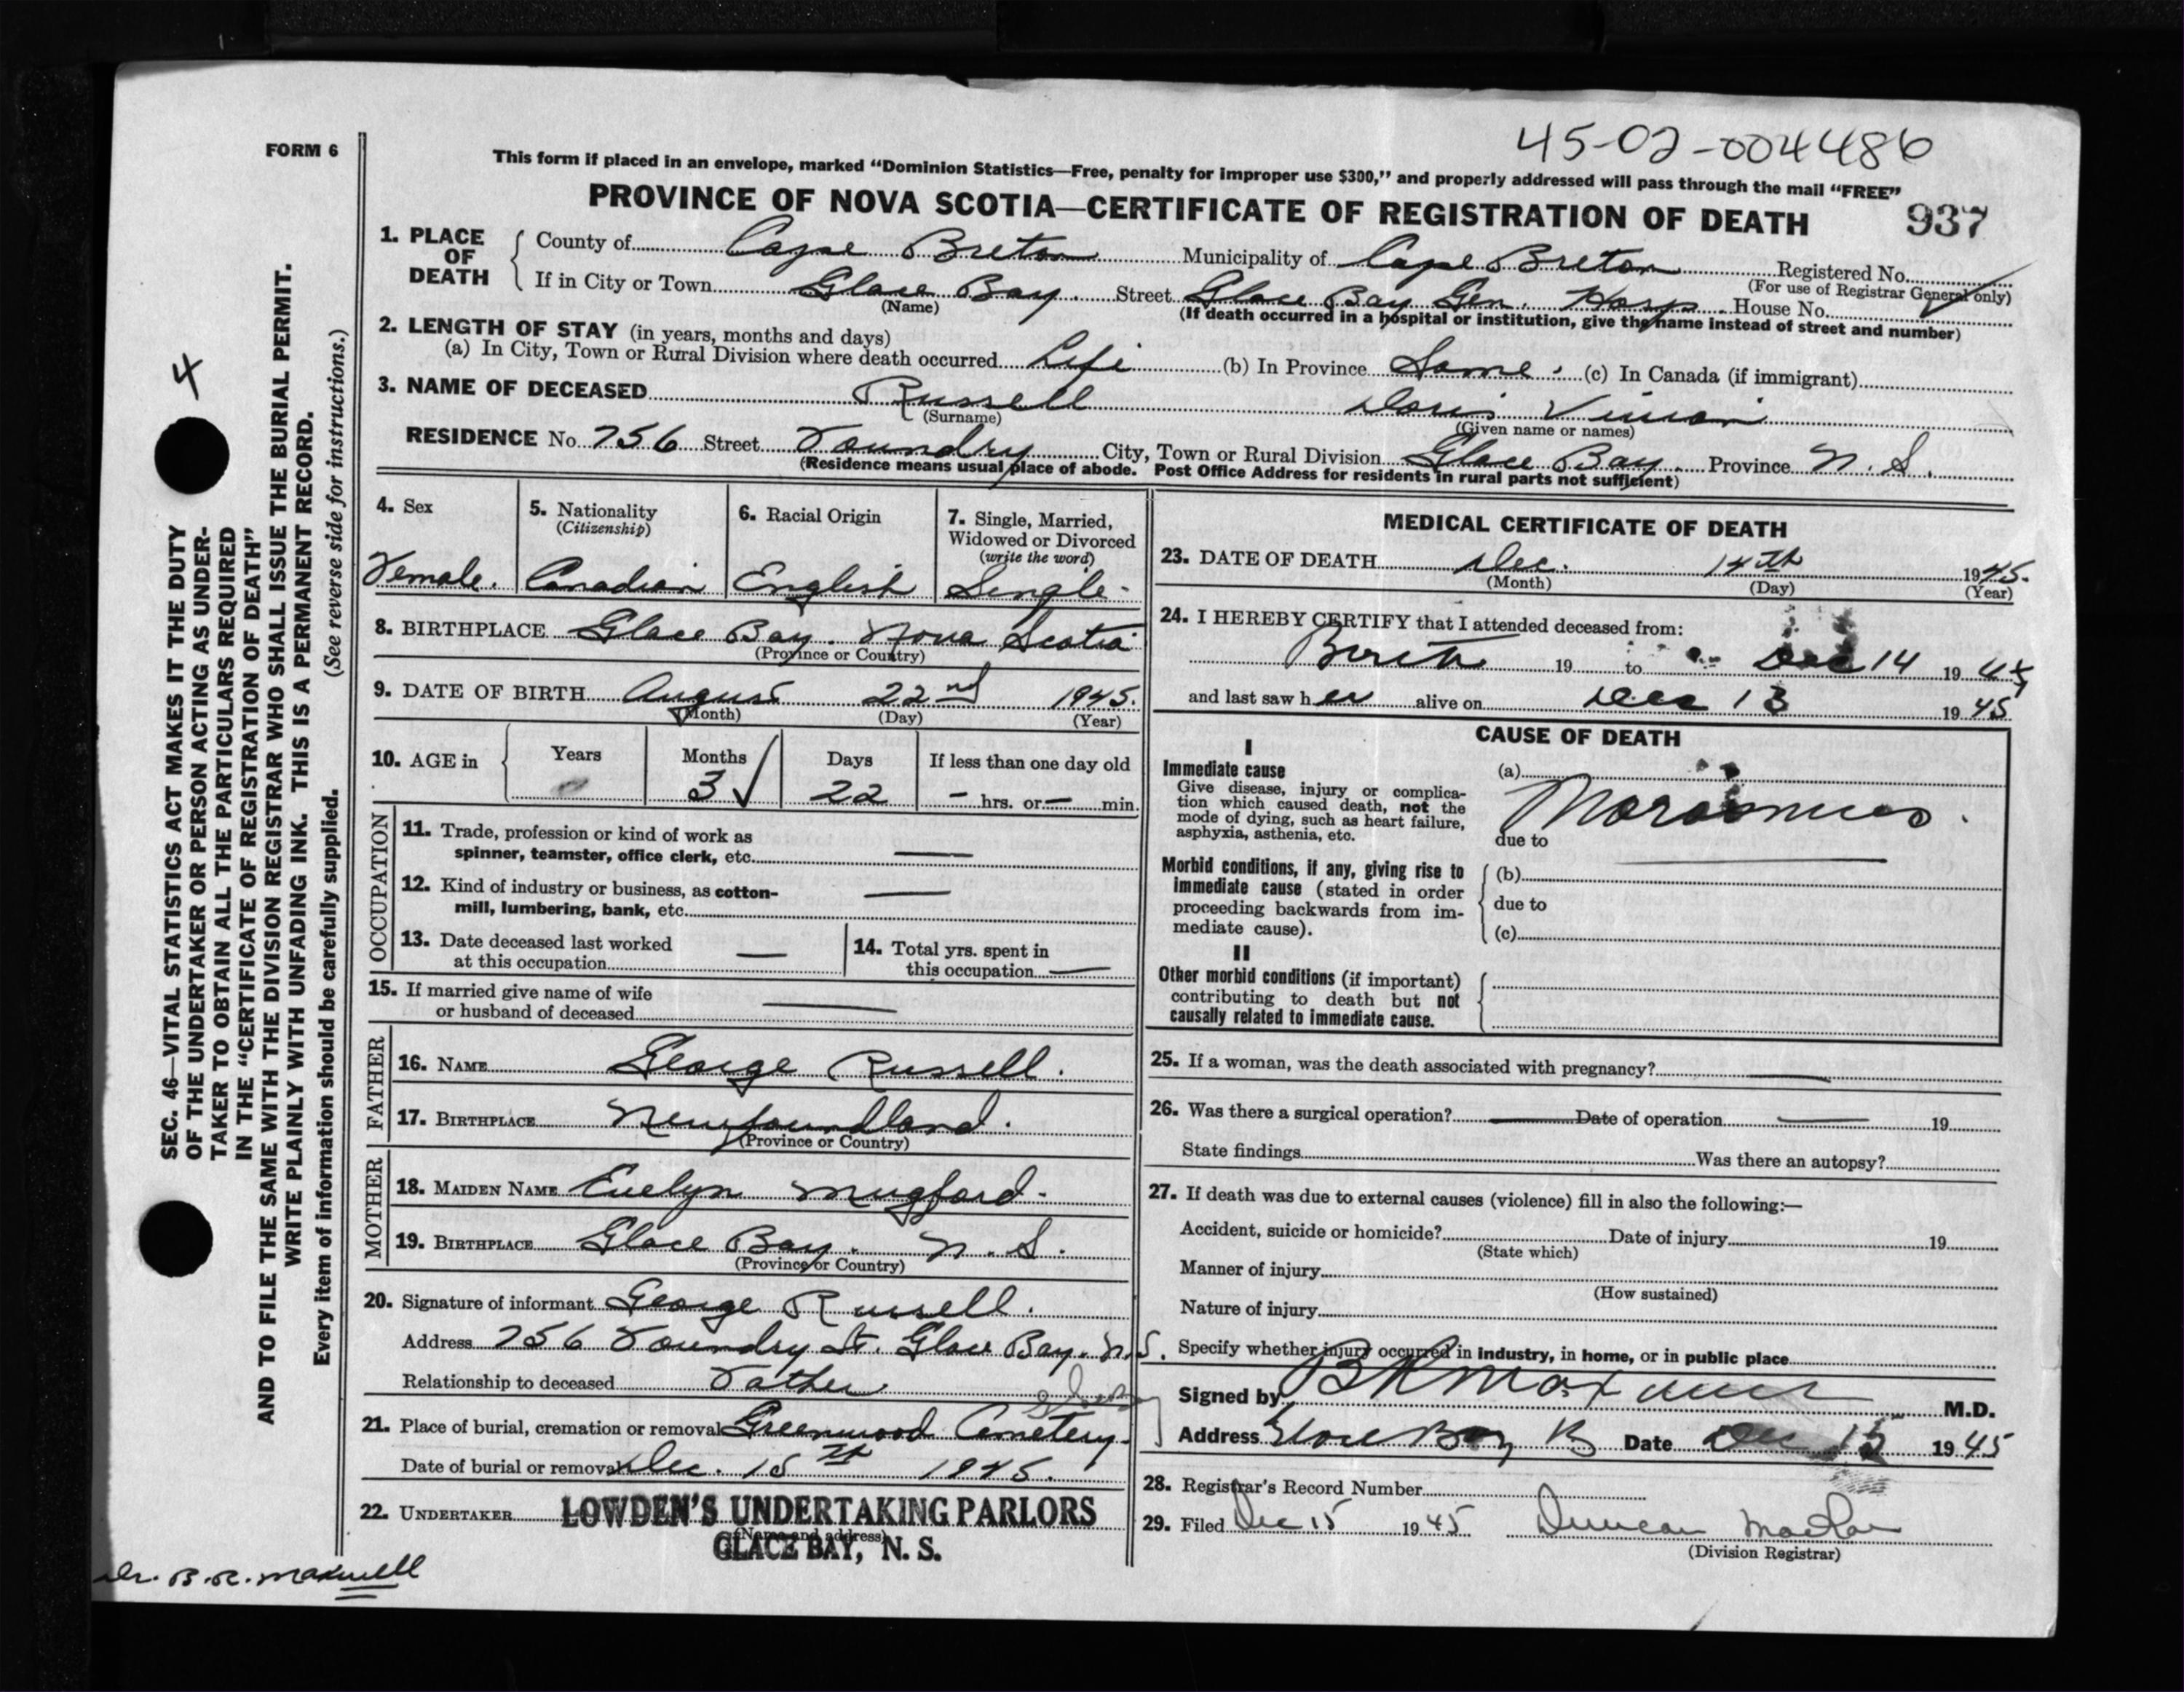 45-02-004486
FORM 6
This form if placed in an envelope, marked "Dominion Statistics—Free, penalty for improper use $300," and properly addressed will pass through the mail "FREE"
PROVINCE OF NOVA SCOTIA—CERTIFICATE OF REGISTRATION OF DEATH 937
1. PLACE OF DEATH County of Cape Breton Municipality of Cape Breton Registered No.
(For use of Registrar General only)
If in City or Town Glace Bay. Street Glace Bay Gen. Hosp. House No.
(Name) (If death occurred in a hospital or institution, give the name instead of street and number)
2. LENGTH OF STAY (in years, months and days)
(a) In City, Town or Rural Division where death occurred Life (b) In Province Same. (c) In Canada (if immigrant)
3. NAME OF DECEASED Russell Doris
(Surname) (Given name or names)
RESIDENCE No. 756 Street Foundry City, Town or Rural Division Glace Bay. Province N. S.
(Residence means usual place of abode. Post Office Address for residents in rural parts not sufficient)
4. Sex
Female.
5. Nationality
(Citizenship)
Canadian
6. Racial Origin
English
7. Single, Married,
Widowed or Divorced
(write the word)
Single.
8. BIRTHPLACE Glace Bay. Nova Scotia
(Province or Country)
9. DATE OF BIRTH August 22nd 1945.
(Month) (Day) (Year)
10. AGE in Years Months Days If less than one day old
3 ✓ 22 – hrs. or – min.
OCCUPATION
11. Trade, profession or kind of work as
spinner, teamster, office clerk, etc. —
12. Kind of industry or business, as cotton-
mill, lumbering, bank, etc. —
13. Date deceased last worked
at this occupation —
14. Total yrs. spent in
this occupation —
15. If married give name of wife
or husband of deceased —
FATHER
16. NAME George Russell.
17. BIRTHPLACE Newfoundland.
(Province or Country)
MOTHER
18. MAIDEN NAME Evelyn Mugford.
19. BIRTHPLACE Glace Bay. N. S.
(Province or Country)
20. Signature of informant George Russell.
Address 756 Foundry St. Glace Bay. N.S.
Relationship to deceased Father
21. Place of burial, cremation or removal Greenwood Cemetery.
Date of burial or removal Dec. 15th 1945.
22. UNDERTAKER LOWDEN'S UNDERTAKING PARLORS
(Name and address)
GLACE BAY, N. S.
Dr. B. R. Maxwell
MEDICAL CERTIFICATE OF DEATH
23. DATE OF DEATH Dec. 14th 1945.
(Month) (Day) (Year)
24. I HEREBY CERTIFY that I attended deceased from:
Birth 19 to Dec 14 19 45
and last saw her alive on Dec 13 19 45
CAUSE OF DEATH
I
Immediate cause
Give disease, injury or complica-
tion which caused death, not the
mode of dying, such as heart failure,
asphyxia, asthenia, etc.
(a) Marasmus.
due to
Morbid conditions, if any, giving rise to
immediate cause (stated in order
proceeding backwards from im-
mediate cause).
(b)
due to
(c)
II
Other morbid conditions (if important)
contributing to death but not
causally related to immediate cause.
25. If a woman, was the death associated with pregnancy? —
26. Was there a surgical operation? — Date of operation — 19
State findings Was there an autopsy?
27. If death was due to external causes (violence) fill in also the following:—
Accident, suicide or homicide? Date of injury 19
(State which)
Manner of injury
(How sustained)
Nature of injury
Specify whether injury occurred in industry, in home, or in public place
Signed by B R Maxwell M.D.
Address Glace Bay Date Dec 15 19 45
28. Registrar's Record Number
29. Filed Dec 15 19 45 Duncan
(Division Registrar)
4
SEC. 46—VITAL STATISTICS ACT MAKES IT THE DUTY
OF THE UNDERTAKER OR PERSON ACTING AS UNDER-
TAKER TO OBTAIN ALL THE PARTICULARS REQUIRED
IN THE "CERTIFICATE OF REGISTRATION OF DEATH"
AND TO FILE THE SAME WITH THE DIVISION REGISTRAR WHO SHALL ISSUE THE BURIAL PERMIT.
WRITE PLAINLY WITH UNFADING INK. THIS IS A PERMANENT RECORD.
Every item of information should be carefully supplied. (See reverse side for instructions.)